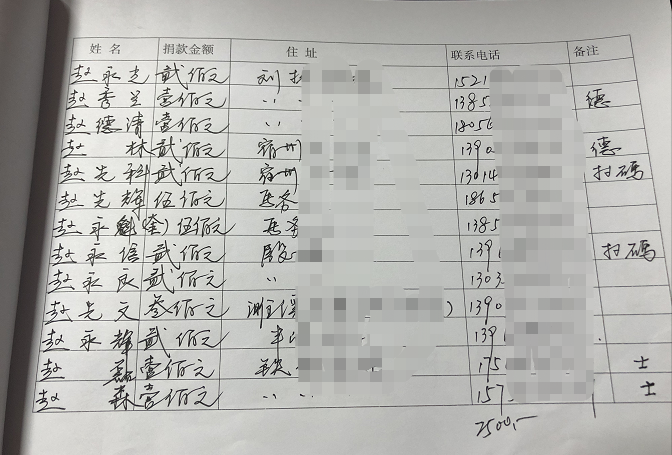 姓名 捐款金额 住址 联系电话 备注
赵永志 贰佰元 刘 1521
赵秀兰 壹佰元 〃 1385 德
赵德清 壹佰元 〃 18056
赵林 贰佰元 宿州 1390 德
赵先科 贰佰元 宿州 13014 扫码
赵先辉 伍佰元 1865
赵永魁(奎) 伍佰元 1385
赵永信 贰佰元 殷 139 扫码
赵永庆 贰佰元 〃 1303
赵先文 叁佰元 ) 1390
赵永辉 贰佰元 139
赵磊 壹佰元 175 士
赵森 壹佰元 〃 157 士
2500,-